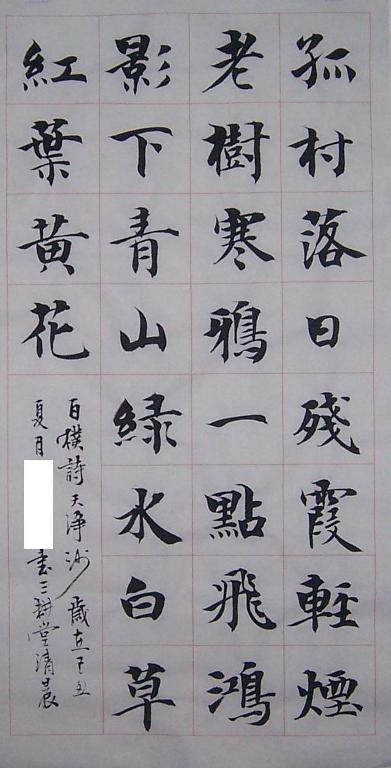 孤村落日殘霞輕煙
老樹寒鴉一點飛鴻
影下青山綠水白草
紅葉黃花
百樸詩天淨沙 歲在己丑
夏月 書三耕堂清晨